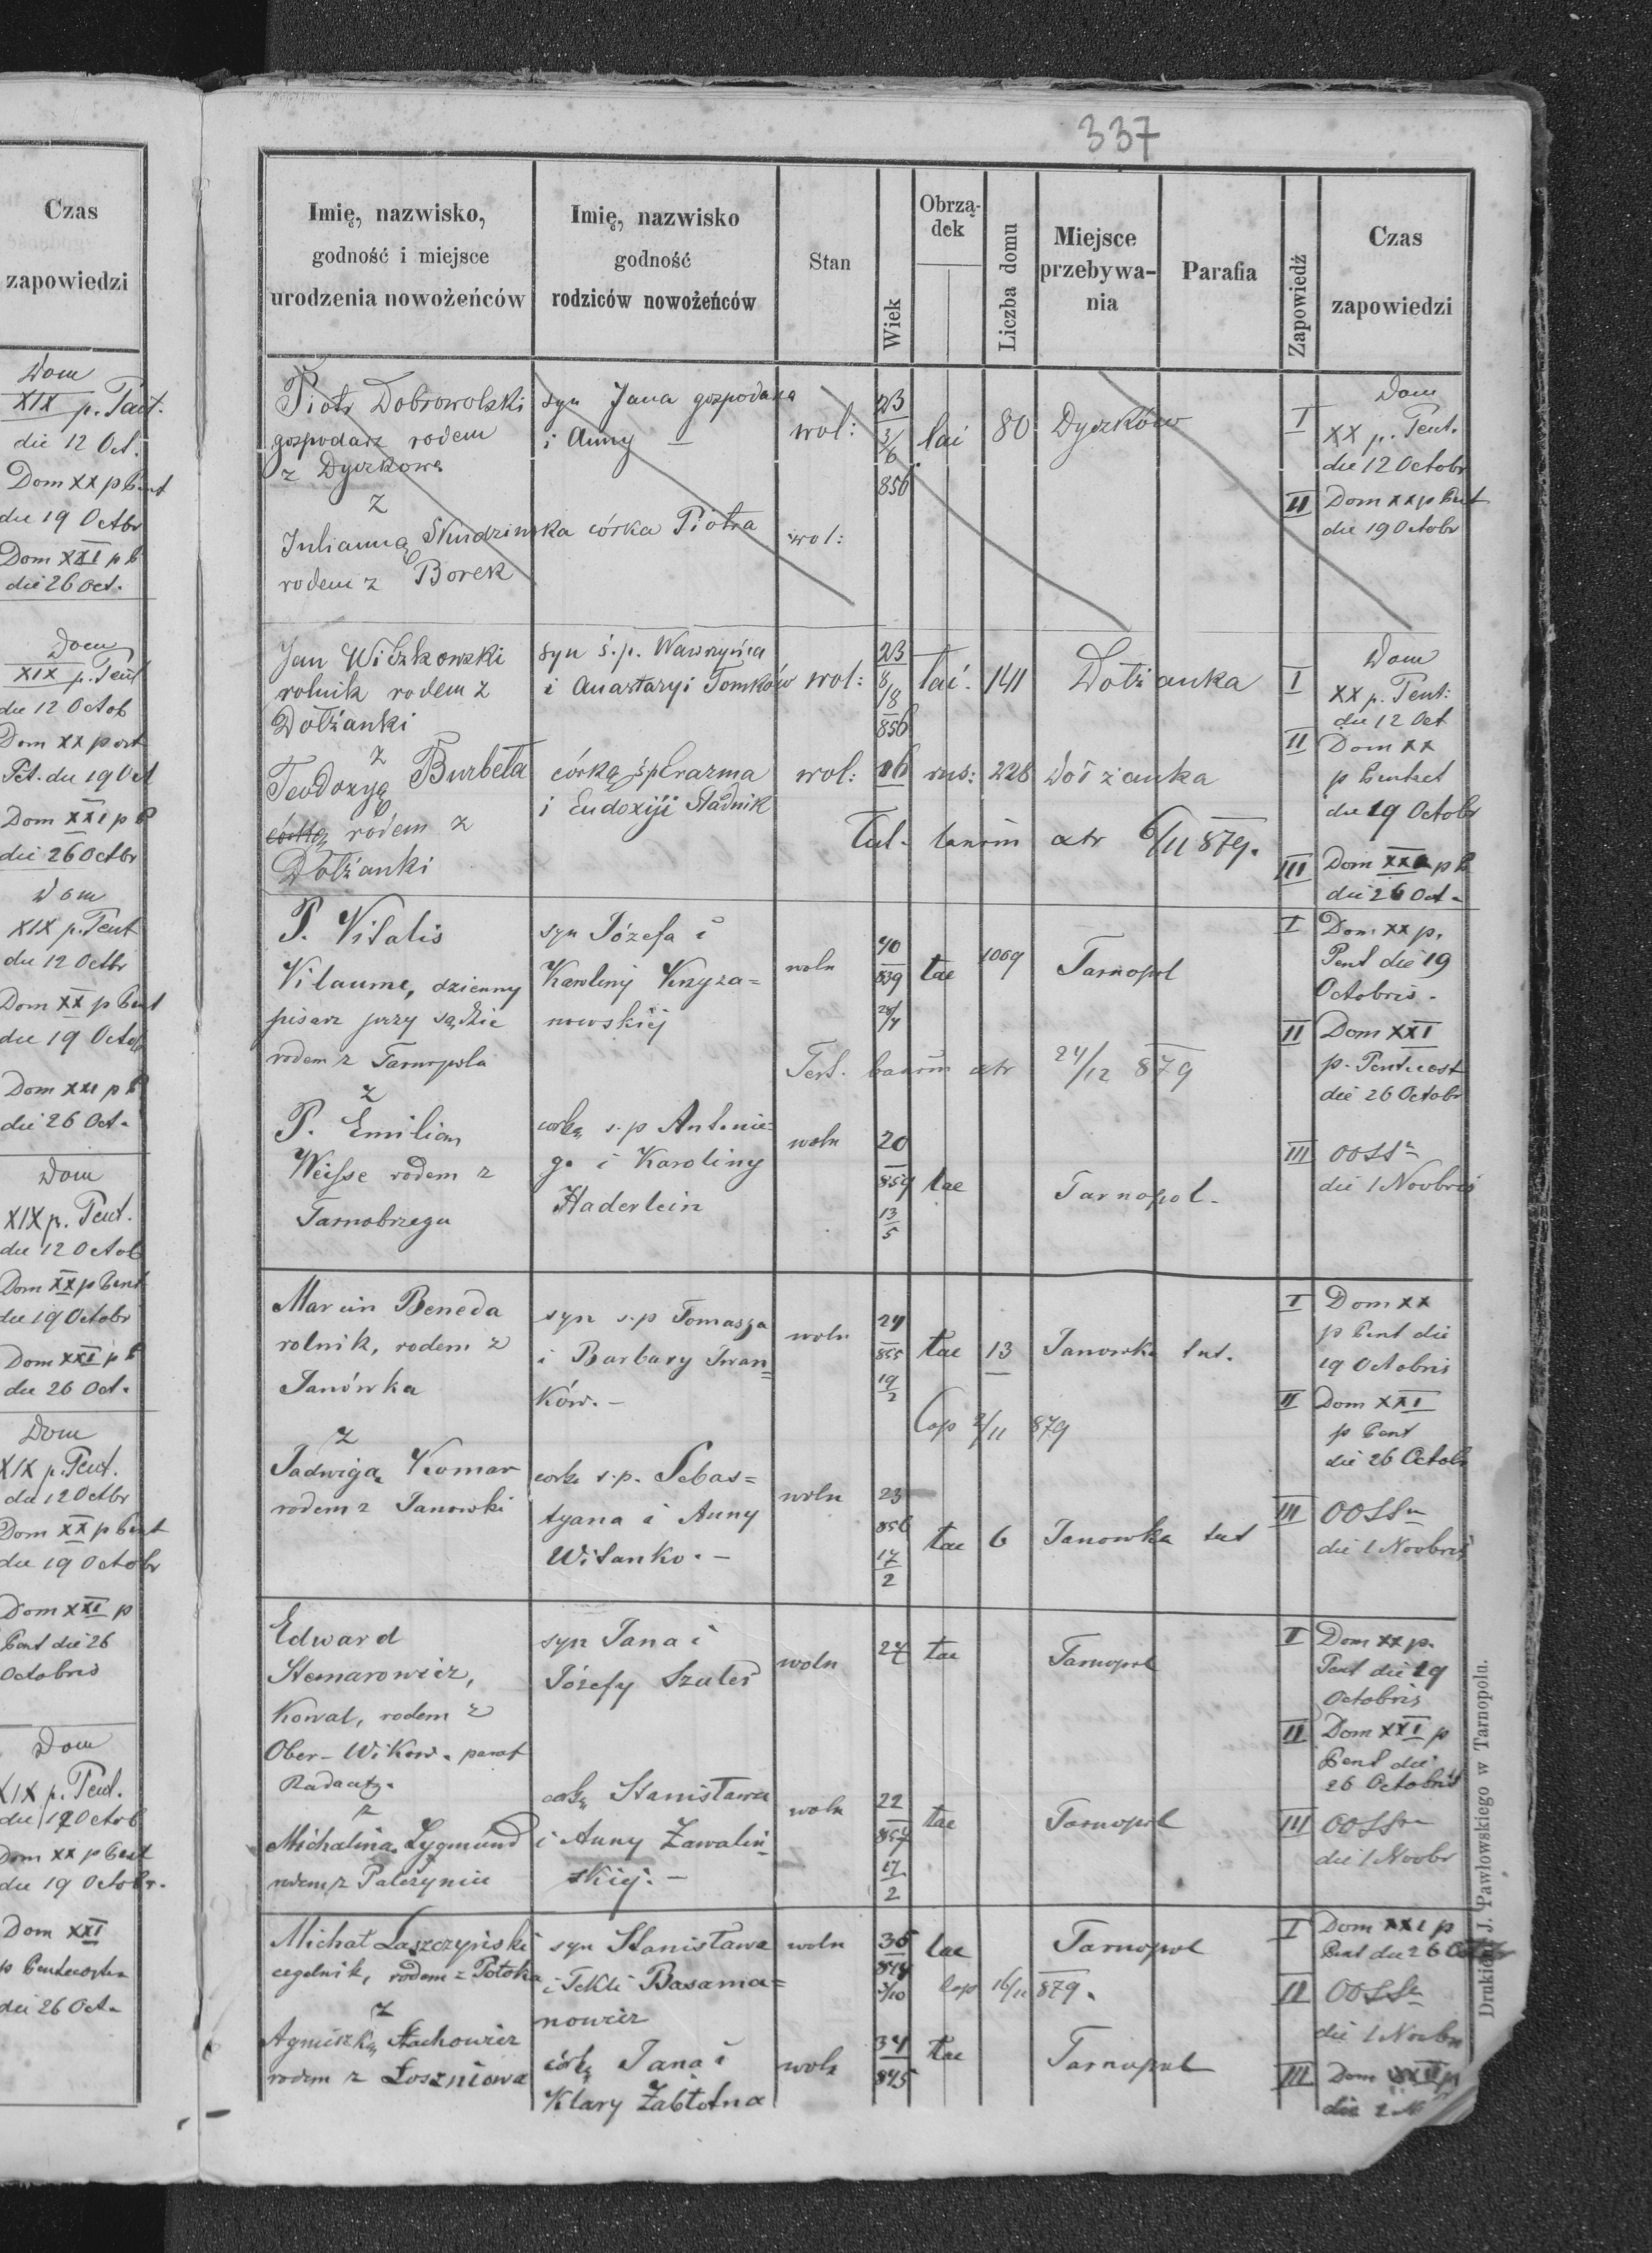 337
Czas
zapowiedzi
Dom
XIX p. Pent.
die 12 Oct.
Dom XX p Pent
die 19 Octbr
Dom XXI p P
die 26 Oct.
Dom
XIX p. Pent
die 12 Octob
Dom XX post
Pet. die 19 Oct
Dom XXI p P
die 26 Octbr
Dom
XIX p. Pent
die 12 Octbr
Dom XX p Pent
die 19 Octob
Dom XXI p P
die 26 Oct.
Dom
XIX p. Pent.
die 12 Octob
Dom XX p Pent
die 19 Octobr
Dom XXI p P
die 26 Oct.
Dom
XIX p. Pent.
die 12 Octbr
Dom XX p Pent
die 19 Octobr
Dom XXI p
Pent die 26
Octobris
Dom
XIX p. Pent.
die 12 Octob
Dom XX p Pent
die 19 Octobr.
Dom XXI
p Pentecosten
die 26 Oct.
Imię, nazwisko,
godność i miejsce
urodzenia nowożeńców
Imię, nazwisko
godność
rodziców nowożeńców
Stan
Wiek
Obrzą-
dek
Liczba domu
Miejsce
przebywa-
nia
Parafia
Zapowiedź
Czas
zapowiedzi
Piotr Dobrowolski
gospodarz rodem
z Dyczkowa
z
Julianną Skudzinska córka Piotra
rodem z Borek
syn Jana gospodarza
i Anny —
wol:
23
3/6
856
lai
80
Dyczków
wol:
I
Dom
XX p. Pent.
die 12 Octobr
II
Dom XX p Pent
die 19 Octobr
Jan Witzkowski
rolnik rodem z
Dołżanki
z
Teodozyą Burbeta
córką rodem z
Dołżanki
syn ś.p. Wawrzyńca
i Anastazyi Tomków
wol:
23
8/8
856
lai.
141
Dołżanka
córką śp Erazma
i Eudoxiji Stadnik
wol:
rus:
226
Dołżanka
6/11 879.
I
Dom
XX p. Pent:
die 12 Oct
II
Dom XX
p Pentect
die 19 Octobr
III
Dom XXI p P
die 26 Oct.
P. Vitalis
Vilaume, dzienny
pisarz przy sądzie
rodem z Tarnopola
z
P. Emilią
Weisse rodem z
Tarnobrzegu
syn Józefa i
Karoliny Krzyża=
nowskiéj
woln
40
839
lac
1069
Tarnopol
24/12 879
corką s.p Antonie=
go i Karoliny
Haderlein
woln
20
859
13
5
lac
Tarnopol.
I
Dom XX p.
Pent die 19
Octobris.
II
Dom XXI
p. Pentecost
die 26 Octobr
III
OOSS
die 1 Novbris
Marcin Beneda
rolnik, rodem z
Janówka
z
Jadwigą Komar
rodem z Janowki
syn s.p Tomasza
i Barbary Iwan=
ków. —
woln
24
855
19
2
lac
13
Janowka tut.
Cop 2/11 879
cork s.p. Sebas=
tyana i Anny
Witanko. —
woln
23
856
17
2
lac
6
Janowka tut
I
Dom XX
p Pent die
19 Octobris
II
Dom XXI
p Pent
die 26 Octobr
III
OOSS
die 1 Novbris
Edward
Stemarowicz,
Kowal, rodem z
Ober-Wikow. paraf
Radautz.
z
Michaliną Zygmund
rodem z Palczyniec
syn Jana i
Józefy Szules
woln
24
lac
Tarnopol
corką Stanisława
i Anny Zawaliń=
skiéj. —
woln
22
857
17
2
lac
Tarnopol
I
Dom XX p.
Pent die 19
Octobris
II
Dom XXI p
Pent die
26 Octobris
III
OOSS
die 1 Novbr
Michał Laszczyński
cegelnik, rodem z Potoka
z
Agnieszką Stachowicz
rodem z Łoszniowa
syn Stanisława
i Tekli Basama=
nowicz
woln
35
lac
Tarnopol
Cop 16/11 879.
córką Jana i
Klary Zabłotna
woln
34
845
lac
Tarnopol
I
Dom XXI p
Pent die 26
II
OOSS
die 1 Novbr
III
Dom XXII p
die 2 N
Drukiem J. Pawłowskiego w Tarnopolu.